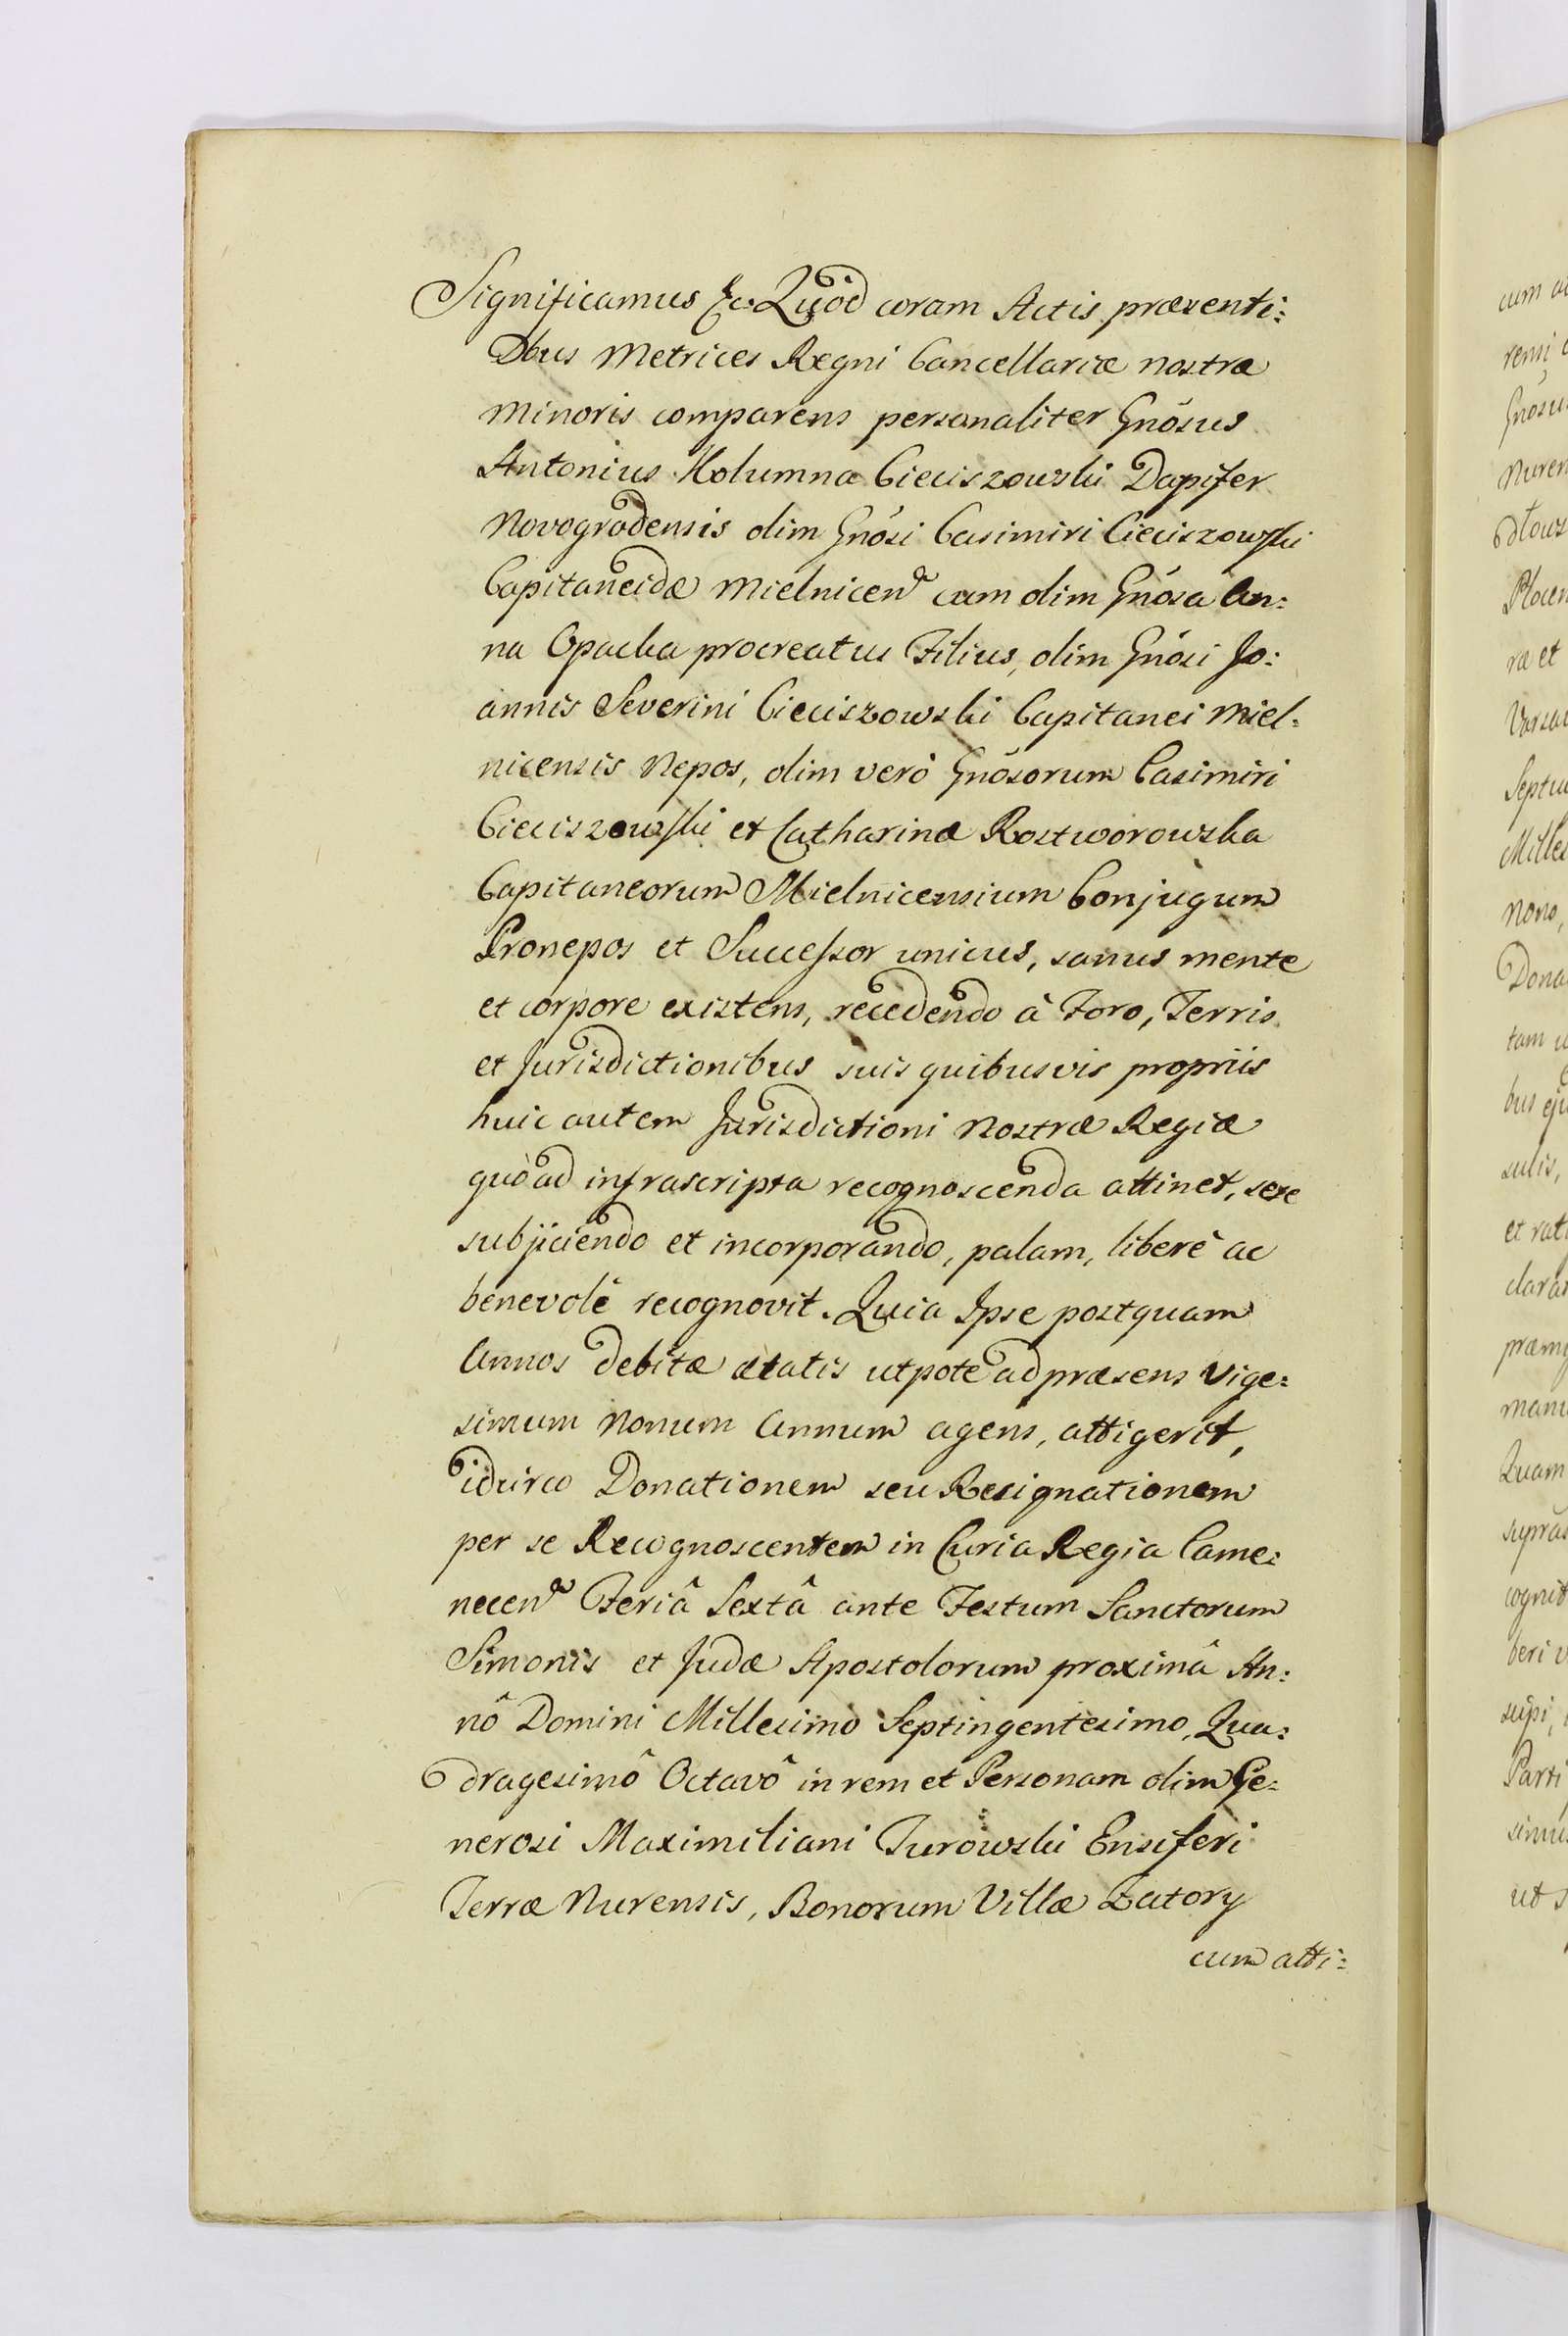 Significamus &c. Quòd coram Actis præsenti:
bus Metrices Regni Cancellariæ nostræ
minoris comparens personaliter Gnõsus
Antonius Kolumna Cieciszowski Dapifer
Novogrodensis olim Gnõsi Casimiri Cieciszowski
Capitaneidæ Mielnicen cum olim Gnõsa An:
na Opacka procreatus Filius, olim Gnõsi Jo:
annis Severini Cieciszowski Capitanei Miel:
nicensis Nepos, olim verò Gnõsorum Casimiri
Cieciszowski et Catharinæ Rostworowska
Capitaneorum Mielnicensium Conjugum
Pronepos et Successor unicus, sanus mente
et corpore existens, recedendo à Foro, Terris
et Jurisdictionibus suis quibusvis propriis
huic autem Jurisdictioni Nostræ Regiæ
quò ad infrascripta recognoscenda attinet, sese
subjiciendo et incorporando, palam, liberè ac
benevolè recognovit. Quia Ipse postquam
Annos debitæ ætatis utpote ad præsens Vige:
simum Nonum Annum agens, attigerit,
idcirco Donationem seu Resignationem
per se Recognoscentem in Curia Regia Came:
necen Feriâ Sextâ ante Festum Sanctorum
Simonis et Judæ Apostolorum proximâ An:
nô Domini Millesimo Septingentesimo, Qua:
dragesimô Octavô in rem et Personam olim Ge:
nerosi Maximiliani Turowski Ensiferi
Terræ Nurensis, Bonorum Villæ Zatory
cum atti: